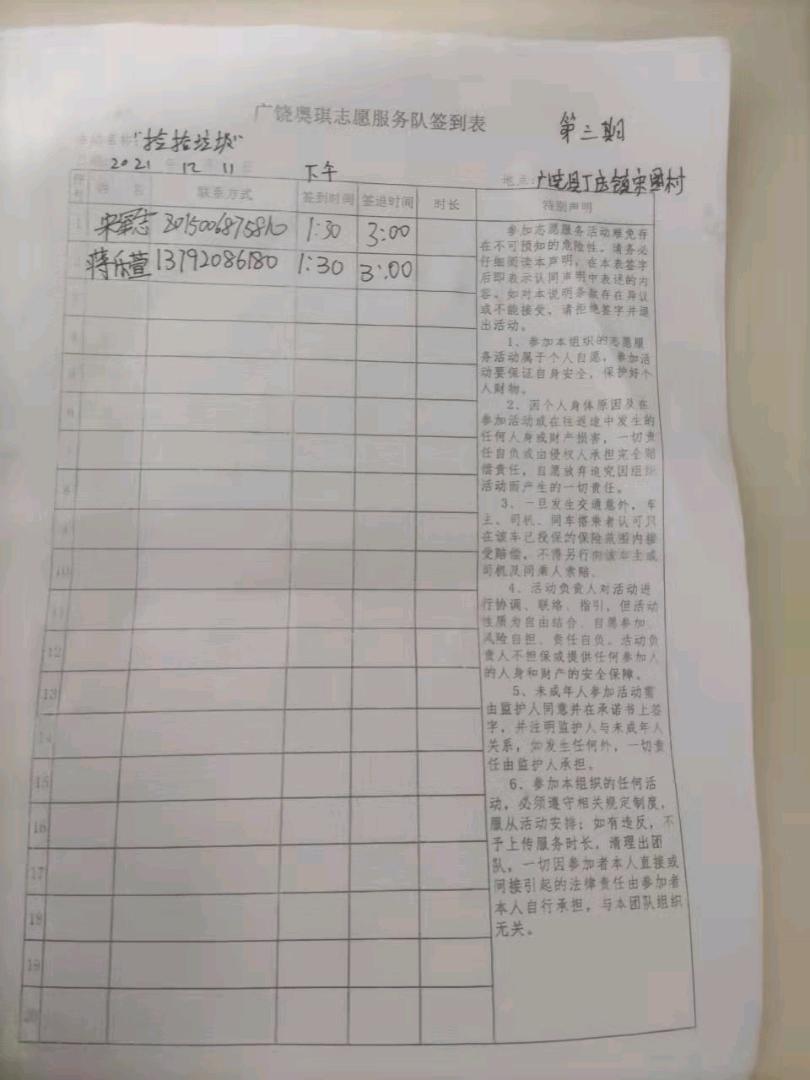 广饶奥琪志愿服务队签到表
第三期
活动名称:"捡拾垃圾"
2021年12月11日 下午
地点:广饶县丁庄镇宋圈村
序号 姓名 联系方式 签到时间 签退时间 时长 特别声明
1 1:30 3:00
2 蒋乐萱 13792086180 1:30 3:00
3
4
5
6
7
8
9
10
11
12
13
14
15
16
17
18
19
20
参加志愿服务活动难免存
在不可预知的危险性。请务必
仔细阅读本声明,在本表签字
后即表示认同声明中表述的内
容。如对本说明条款存在异议
或不能接受,请拒绝签字并退
出活动。
1、参加本组织的志愿服
务活动属于个人自愿,参加活
动要保证自身安全,保护好个
人财物。
2、因个人身体原因及在
参加活动或在往返途中发生的
任何人身或财产损害,一切责
任自负或由侵权人承担完全赔
偿责任,自愿放弃追究因组织
活动而产生的一切责任。
3、一旦发生交通意外,车
主、司机、同车搭乘者认可只
在该车已投保的保险范围内接
受赔偿,不得另行向该车主或
司机及同乘人索赔。
4、活动负责人对活动进
行协调、联络、指引,但活动
性质为自由结合、自愿参加、
风险自担、责任自负。活动负
责人不担保或提供任何参加人
的人身和财产的安全保障。
5、未成年人参加活动需
由监护人同意并在承诺书上签
字,并注明监护人与未成年人
关系,如发生任何外,一切责
任由监护人承担。
6、参加本组织的任何活
动,必须遵守相关规定制度,
服从活动安排;如有违反,不
予上传服务时长,清理出团
队,一切因参加者本人直接或
间接引起的法律责任由参加者
本人自行承担,与本团队组织
无关。